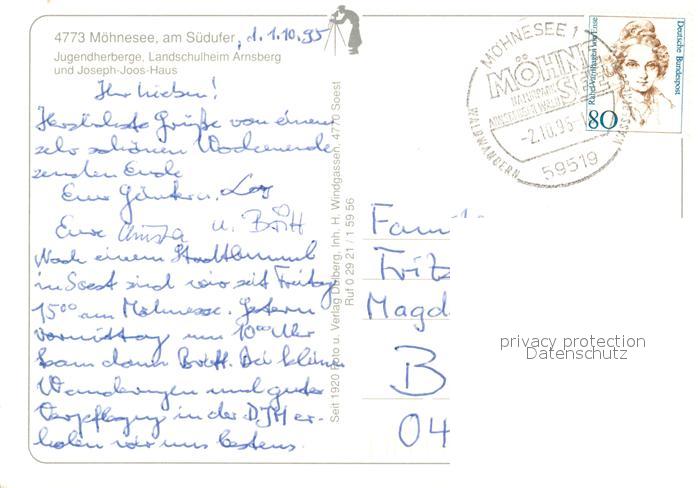 4773 Möhnesee, am Südufer, d. 1.10.95
Jugendherberge, Landschulheim Arnsberg
und Joseph-Joos-Haus
Ihr Lieben!
Herzlichste Grüße von einem
sehr schönen Wochenende
senden Euch
Eure Günter u.
Eure Christa u. Britt
Nach einem Stadtbummel
in Soest sind wir seit Freitag
15⁰⁰ am Möhnesee. Gestern
vormittag um 10⁰⁰ Uhr
kam dann Britt. Bei kleinen
Wanderungen und guter
Verpflegung in der DJH er-
holen wir uns bestens.
Seit 1920 Foto u. Verlag Dalberg, Inh. H. Windgassen, 4770 Soest
Ruf 0 29 21 / 1 59 56
MÖHNESEE 1
MÖHNE
SEE
NATURPARK
ARNSBERGER WALD
-2.10.95-1
WALDWANDERN
59519
Deutsche Bundespost
Rahel Varnhagen von Ense
80
Fam
Fritz
Magd
B
04
privacy protection
Datenschutz